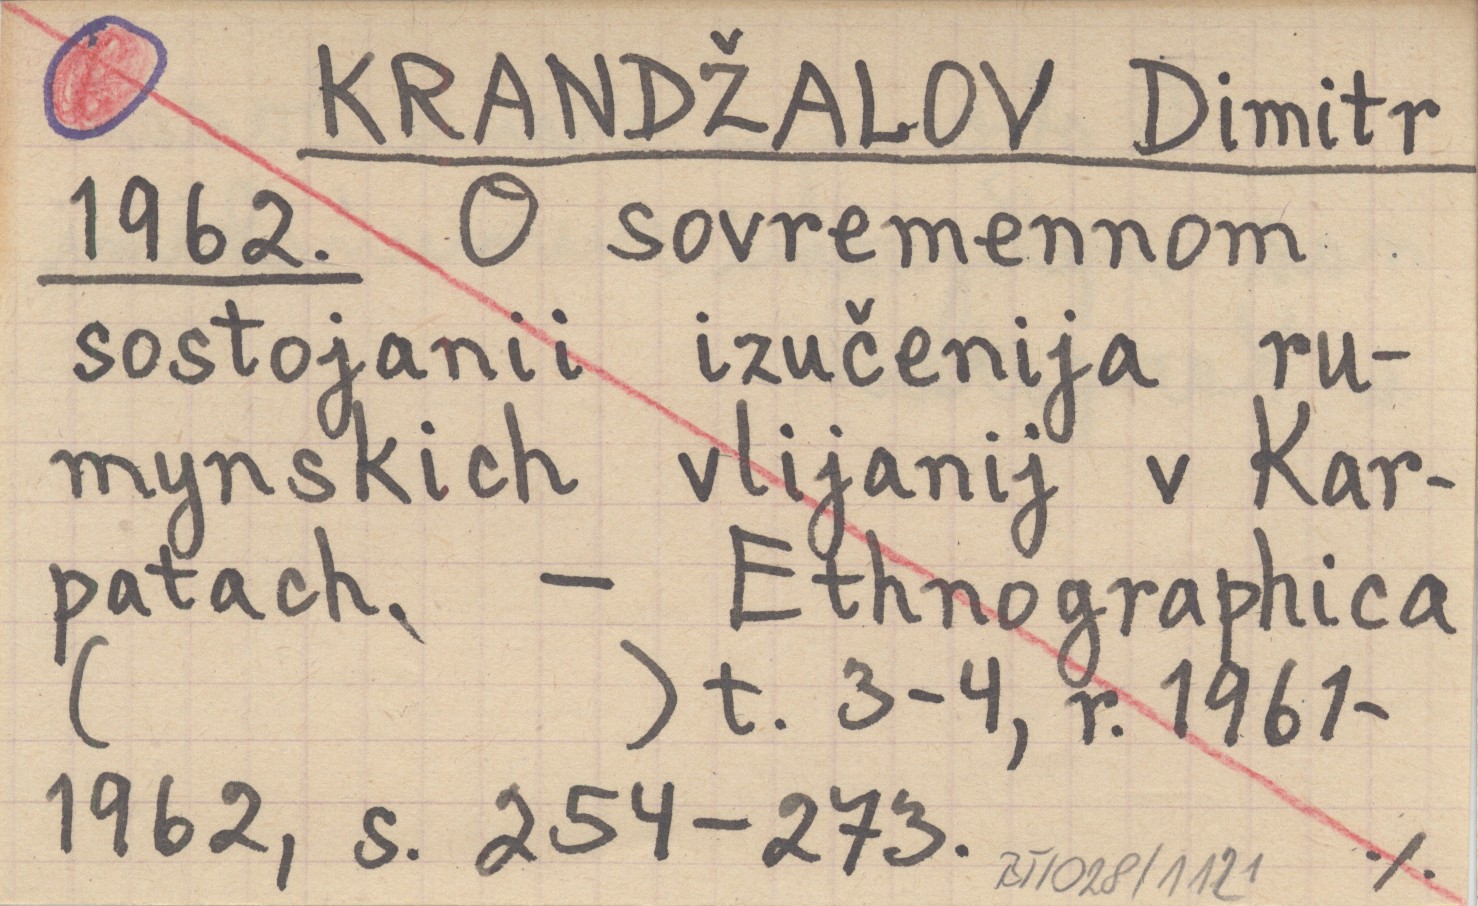 KRANDŽALOV Dimitr
1962. O sovremennom
sostojanii izučenija ru-
mynskich vlijanij v Kar-
patach. - Ethnographica
( ) t. 3-4, r. 1961-
1962, s. 254-273.
./.